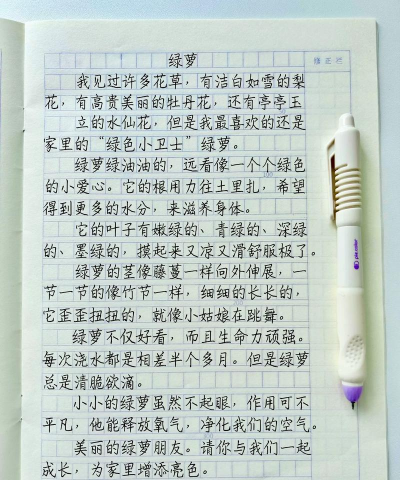 绿萝
我见过许多花草，有洁白如雪的梨
花，有高贵美丽的牡丹花，还有亭亭玉
立的水仙花，但是我最喜欢的还是
家里的“绿色小卫士”绿萝。
绿萝绿油油的，远看像一个个绿色
的小爱心。它的根用力往土里扎，希望
得到更多的水分，来滋养身体。
它的叶子有嫩绿的、青绿的、深绿
的、墨绿的，摸起来又凉又滑舒服极了。
绿萝的茎像藤蔓一样向外伸展，一
节一节的像竹节一样，细细的长长的，
它歪歪扭扭的，就像小姑娘在跳舞。
绿萝不仅好看，而且生命力顽强。
每次浇水都是相差半个多月。但是绿萝
总是清脆欲滴。
小小的绿萝虽然不起眼，作用可不
平凡，他能释放氧气，净化我们的空气。
美丽的绿萝朋友。请你与我们一起
成长，为家里增添亮色。